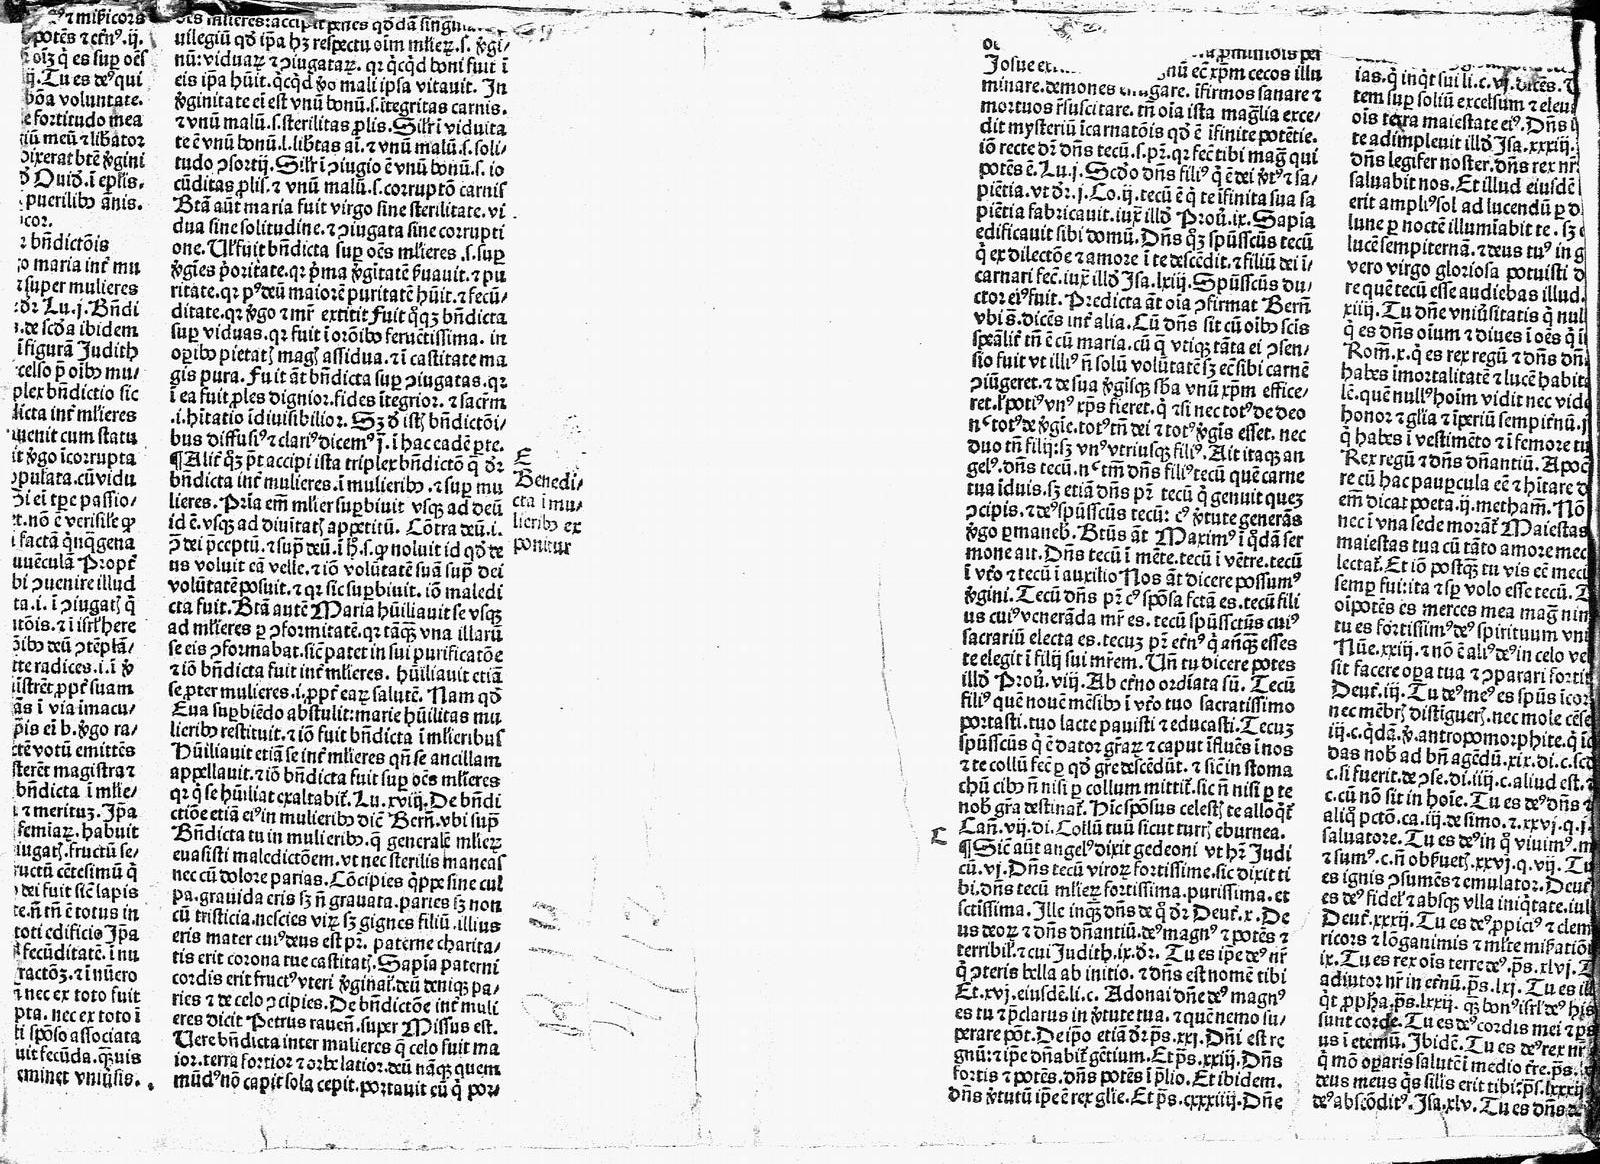 ⁊ mißicors
potēs ⁊ et̄nꝰ.ij.
oīʒ q̇ es suꝑ oēs
ij.Tu es deꝰ qui
bōa voluntate.
e fortitudo mea
iū meū ⁊ libator
dixerat btē v̇gini
Ouid.i epl̄is.
puerilibꝫ ānis.
icor.
bn̄dictōis
o maria int̄ mu
⁊ super mulieres
dr̄ Lu.j.Bn̄di
s.de scd̄a ibidem
i figurā Judith
celso p̄ oībꝫ mu/
plex bn̄dictio sic
dicta int̄ ml̄ieres
uenit cum statu
it v̇go īcorrupta
opulata.cū vidu
ei tꝑe passio/
t.nō ē verisil̄e ꝙ
i facta q̇nq̄gena
Propt̄
bi ↄuenire illud
ta.i.ī ↄiugatꝭ q̇
oībꝫ deū
te radices.i.ī v̇
ꝓpt̄ suam
as ī via imacu/
p̄is ei b.v̇go ra/
ctē votū emittēs
sterēt magistra ⁊
bn̄dicta ī ml̄ie/
⁊ meritꝰ. Jp̄a
femiaꝝ.habuit
iugatꝭ.fructū se/
ructū cētesimū q̇
dei fuit sic̄ lapis
te.n̄ tn̄ ē totus in
toti edificio Jp̄a
fecūditatē.ī nu
ractōʒ.⁊ ī nūero
nec ex toto fuit
pta.nec ex toto ī
ti spōso associata
uit fecūda.q̄uis
eminet vniūsis.
oēs ml̄ieres:accipit penes qd̄dā singu
uilegiū qd̄ ip̄a hʒ respectu oīm ml̄ieꝝ.s.v̇gi/
nū:viduaꝝ ⁊ ↄiugataꝝ.qꝛ qc̄qd̄ boni fuit ī
eis ip̄a hūit.q̄cqd̄ v̇o mali ipsa vitauit. Jn
v̇ginitate ei est vnū bonū.s.ītegritas carnis.
⁊ vnū malū.s.sterilitas ꝓlis.Sil̄r ī viduita
te ē vnū bonū.l.lib̄tas ai.⁊ vnū malū.s.soli/
tudo ↄsortij.Sil̄r ī ↄiugio ē vnū bonū.s.io
cūditas ꝓlis.⁊ vnū malū.s.corruptō carnis
Btā aūt maria fuit virgo sine sterilitate.vi
dua sine solitudine.⁊ ↄiugata sine corrupti
one.Ul̄ fuit bn̄dicta suꝑ oēs ml̄ieres.s.suꝑ
v̇gīes p̄oritate.qꝛ p̄ma v̇gītatē ẜuauit.⁊ pu
ritate.qꝛ pꝰ deū maiorē puritatē hūit.⁊ fecū/
ditate.qꝛ v̇go ⁊ mr̄ extitit Fuit q̊qʒ bn̄dicta
suꝑ viduas.qꝛ fuit ī orōibꝫ feruētissima. in
oꝑibꝫ pietatꝭ magꝭ assidua.⁊ ī castitate ma
gis pura.Fuit āt bn̄dicta suꝑ ↄiugatas.qꝛ
ī ea fuit ꝓles dignior.fides ītegrior.⁊ sacrm̄
.i.hītatio īdiuisibilior. Sʒ ꝺ istꝭ bn̄dictōi/
bus diffusiꝰ ⁊ clariꝰ dicemꝰ j.ī hac eadē ꝑte.
¶Alit̄ q̊ʒ p̄t accipi ista triplex bn̄dictō q̄ dr̄
bn̄dicta int̄ mulieres.ī mulieribꝫ.⁊ suꝑ mu
lieres.Pr̄ia em̄ ml̄ier suꝑbiuit vsqʒ ad deū
id ē.vsqʒ ad diuitatꝭ appetitū. Cōtra deū.i.
ↄ̄ dei p̄ceptū.⁊ sup̄ deū.i hꝭ.s.ꝙ noluit id qd̄ de
us voluit eā velle.⁊ iō volūtatē suā sup̄ dei
volūtatē posuit.⁊ qꝛ sic suꝑbiuit.iō maledi
cta fuit.Btā autē Maria hūiliauit se vsqʒ
ad ml̄ieres ꝑ ↄformitatē.qꝛ tāqʒ vna illarū
se eis ↄformabat.sic̄ patet in sui purificatōe
⁊ iō bn̄dicta fuit int̄ ml̄ieres. hūiliauit etiā
se ꝓter mulieres.i.ꝓpt̄ eaꝝ salutē. Nam qd̄
Eua suꝑbiēdo abstulit:marie hūilitas mu
lieribꝫ restituit.⁊ iō fuit bn̄dicta ī ml̄ieribus
Hūiliauit etiā se int̄ ml̄ieres qn̄ se ancillam
appellauit.⁊ iō bn̄dicta fuit suꝑ oēs ml̄ieres
qꝛ q̇ se hūiliat exaltabit̄. Lu.xviij.De bn̄di
ctiōe etiā eiꝰ in mulieribꝫ dic̄ Bern̄.vbi sup̄
Bn̄dicta tu in mulieribꝫ.q̄ generale ml̄ieꝝ
euasisti maledictōem.vt nec sterilis maneas
nec cū dolore parias. Cōcipies q̇ppe sine cul
pa.grauida eris sʒ n̄ grauata.paries sʒ non
cū tristicia.nescies viꝝ sʒ gignes filiū.illius
eris mater cuiꝰ deus est pr̄. paterne charita/
tis erit corona tue castitatꝭ.Sapia paterni
cordis erit fructꝰ vteri v̇ginai.deū deniqʒ pa/
ries ⁊ de celo ↄcipies.De bn̄dictōe int̄ muli
eres dicit Petrus rauen̄.super Missus est.
Vere bn̄dicta inter mulieres q̄ celo fuit ma
ior.terra fortior ⁊ orbe latior.deū nāqʒ quem
mūdꝰ nō capit sola cepit.portauit eū q̇ por/
E
Benedi/
cta ī mu/
lieribꝫ ex
ponitur
Josue
gnū ec̄ xpm̄ cecos illu
minare.demones effugare.īfirmos sanare ⁊
mortuos r̄suscitare.tn̄ oīa ista mag̊lia exce/
dit mysteriū īcarnatōis qd̄ ē īfinite potētie.
iō recte dr̄ dn̄s tecū.s.pr̄.qꝛ fec̄ tibi mag̊ qui
potēs ē. Lu.j. Scd̄o dn̄s filiꝰ q̇ ē dei v̇tꝰ ⁊ sa/
piētia.vt dr̄.j.Co.ij.tecū ē q̇ te īfinita sua sa
piētia fabricauit.iux̄ illd̄ Prou̇.ix.Sapia
edificauit sibi domū.Dn̄s q̊ʒ spūsscūs tecū
q̇ ex dilectōe ⁊ amore ī te descēdit.⁊ filiū dei ī/
carnari fec̄.iux̄ illd̄ Jsa.lxiij.Spūsscūs du/
ctor eiꝰ fuit.Predicta āt oīa ↄfirmat Bern̄
vbi s̄.dicēs int̄ alia.Cū dn̄s sit cū oībꝫ scīs
speālit̄ tn̄ ē cū maria.cū q̇ vtiqʒ tāta ei ↄsen/
sio fuit vt illiꝰ n̄ solū volūtatē sʒ ec̄ sibi carnē
ↄiūgeret.⁊ de sua v̇gisqʒ sb̄a vnū xpm̄ effice/
ret.l̄ potiꝰ vnꝰ xp̄s fieret.q̇ ⁊si nec totꝰ de deo
nec totꝰ de v̇gīe.totꝰ tn̄ dei ⁊ totꝰ v̇gīs esset. nec
duo tn̄ filij:sʒ vnꝰ vtriusqʒ filiꝰ.Ait itaqʒ an
gelꝰ.dn̄s tecū.nec tm̄ dn̄s filiꝰ tecū quē carne
tua īduis.sʒ etiā dn̄s pr̄ tecū q̇ genuit quez
ↄcipis.⁊ deꝰ spūsscūs tecū: cꝰ v̇tute generās
v̇go ꝑmanebꝭ.Btūs āt Maximꝰ ī q̇dā ser
mone ait.Dn̄s tecū ī mēte.tecū ī vētre.tecū
ī vt̄o ⁊ tecū ī auxilio Nos āt dicere possumꝰ
v̇gini.Tecū dn̄s pr̄ cꝰ spōsa fctā es.tecū fili
us cuiꝰ venerāda mr̄ es.tecū spūssctūs cuiꝰ
sacrariū electa es.tecuz pr̄ et̄nꝰ q̇ an̄qʒ esses
te elegit ī filij sui mr̄em. Un̄ tu dicere potes
illd̄ Prou̇.viij.Ab et̄no ordīata sū. Tecū
filiꝰ quē nouē mēsibꝫ ī vt̄o tuo sacratissimo
portasti.tuo lacte pauisti ⁊ educasti.Tecuz
spūsscūs q̇ ē dator gr̄aꝝ ⁊ caput īfluēs ī nos
⁊ te collū fec̄ ꝑ qd̄ gr̄e descēdūt.⁊ sic̄ in stoma
chū cibꝫ n̄ nisi ꝑ collum mittit̄.sic n̄ nisi ꝑ te
nob̄ gr̄a destinat̄.Hic spōsus celestꝭ te alloqt̄
Can̄.vij.di.Collū tuū sicut turrꝭ eburnea.
¶Sic̄ aūt angelꝰ dixit gedeoni vt hr̄ Judi
cū.vj.Dn̄s tecū viroꝝ fortissime.sic dixit ti
bi.dn̄s tecū ml̄ieꝝ fortissima.purissima.et
sctīssima.Jlle inqʒ dn̄s de q̊ dr̄ Deut̄.x.De
us deoꝝ ⁊ dn̄s dn̄antiū.deꝰ magnꝰ ⁊ potēs ⁊
terribil̄.⁊ cui Judith.ix.dr̄. Tu es ip̄e deꝰ nr̄
q̇ ↄteris bella ab initio.⁊ dn̄s est nomē tibi
Et.xvj.eiusdē.li.c. Adonai dn̄e deꝰ magnꝰ
es tu ⁊ p̄clarus in v̇tute tua.⁊ quē nemo su/
perare pōt.De ip̄o etiā dr̄ ps̄.xxj.Dn̄i est re
gnū:⁊ ip̄e dn̄abit̄ gētium.Et ps̄.xxiij.Dn̄s
fortis ⁊ potēs.dn̄s potēs ī p̄lio.Et ibidem.
dn̄s v̇tutū ip̄e ē rex gl̄ie.Et ps̄.cxxxiiij.Dn̄e
L
ias.q̇ inq̇t sui li.c.vj.dicēs.
tem suꝑ soliū excelsum ⁊ eleua
ois terra maiestate eiꝰ.Dn̄s
te adimpleuit illd̄ Jsa.xxxiij.
dn̄s legifer noster.dn̄s rex nr̄
saluabit nos.Et illud eiusdē
erit ampliꝰ sol ad lucendū ꝑ d
lune ꝑ noctē illumiabit te. sʒ
lucē sempiternā.⁊ deus tuꝰ in g
vero virgo gloriosa potuisti d
re quē tecū esse audiebas illud.
xiiij.Tu dn̄e vniūsitatis q̇ nul
q̇ es dn̄s oīum ⁊ diues ī oēs q̇
Rom̄.x.q̇ es rex regū ⁊ dn̄s dn̄
habes īmortalitatē ⁊ lucē habita
lē.quē nullꝰ hoīm vidit nec vide
honor ⁊ gl̄ia ⁊ īperiū sempit̄nū.
q̇ habes ī vestimēto ⁊ ī femore tu
Rex regū ⁊ dn̄s dn̄antiū. Apoc̄
re cū hac paupcula eē ⁊ hītare d
em̄ dicat poeta.ij.metham̄. Nō
nec ī vna sede morāt̄ Maiestas
maiestas tua cū tāto amore mec
lectat̄.Et iō postqʒ tu vis eē mecū
semꝑ fui:ita ⁊ sꝑ volo esse tecū.
oīpotēs es merces mea mag̊ nim
tu es fortissimꝰ deꝰ spirituum vni
Nūe.xxiij.⁊ nō ē aliꝰ deꝰ in celo vel
sit facere oꝑa tua ⁊ ↄparari fortit
Deut̄.iij. Tu deꝰ meꝰ es spūs īcor
nec mēbrꝭ distīguerꝭ.nec mole cēse
iij.c.q̇dā.v̇.antropomorphite.q̇
das nob̄ ad bn̄ agēdū.xix.di.c.
c.si fuerit.de ↄse.di.iiij.c.aliud est.
c.cū nō sit in hoīe. Tu es deꝰ dn̄s ⁊
aliq̇ pctō.ca.iij.de simo.⁊.xxvj.q.j.
saluatore.Tu es deꝰ in q̊ viuimꝰ.m
⁊ sumꝰ.c.n̄ obẜuetꝭ.xxvj.q.vij. Tu
es ignis ↄsumēs ⁊ emulator. Deut̄
es deꝰ fidel̄ ⁊ absqʒ vlla iniq̇tate.iu
Deut̄.xxxij. Tu es deꝰ ꝓpiciꝰ ⁊ clem
ricors ⁊ lōganimis ⁊ ml̄te mib̄atiōi
ix.Tu es rex oīs terre deꝰ.ps̄.xlvj.
adiutor nr̄ in et̄nū.ps̄.lxj. Tu es il
q̇t ꝓpħa.ps̄.lxxij. q̇ʒ bonꝰ isrl̄ deꝰ his
sunt corde.Tu es deꝰ cordis mei ⁊ ps
us ī et̄mū. Jbidē. Tu es deꝰ rex nr̄
q̇ mō oꝑaris salutē ī medio tr̄e.ps̄.
deus meus q̇s silis erit tibi:ps̄.lxxxij
deꝰ abscōditꝰ. Jsa.xlv. Tu es dn̄s